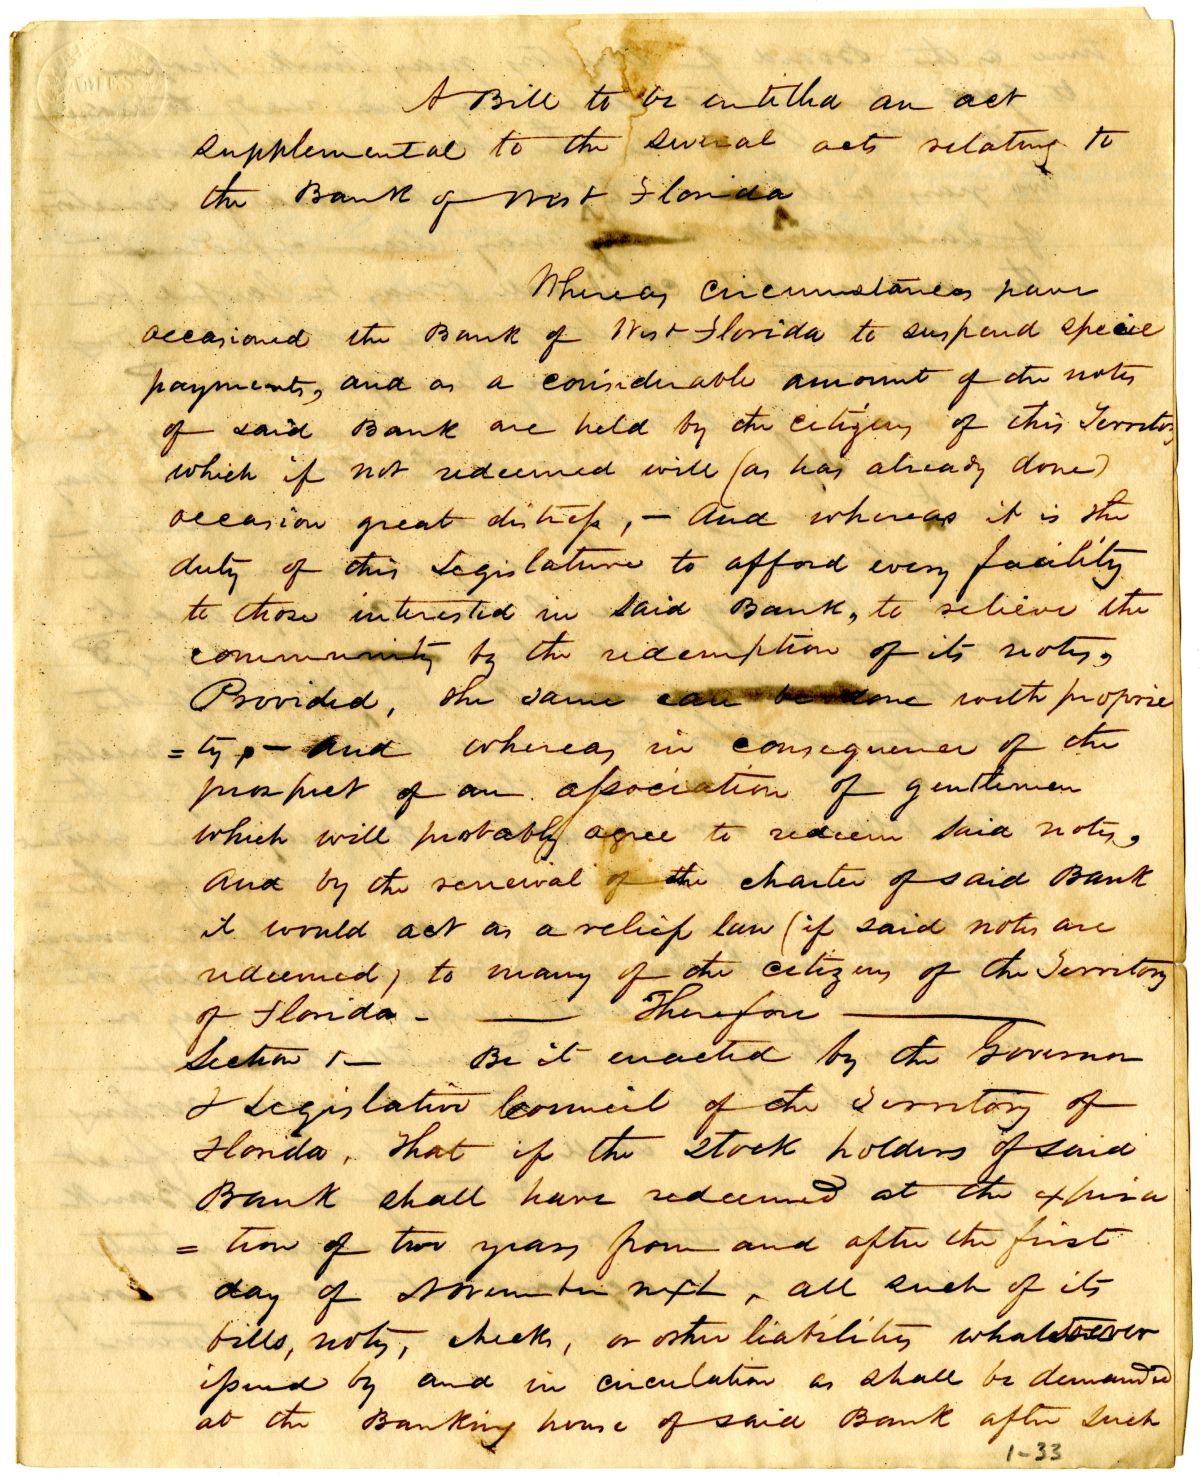 A Bill to be entitled an act
supplemental to the several acts relating to
the Bank of West Florida
Whereas circumstances have
occasioned the Bank of West Florida to suspend specie
payments, and as a considerable amount of the notes
of said Bank are held by the citizens of this Territory
which if not redeemed will (as has already done)
occasion great distress, – And whereas it is the
duty of this Legislature to afford every facility
to those interested in said Bank, to relieve the
community by the redemption of its notes,
Provided, the same can be done with proprie
=ty, – And whereas in consequence of the
prospect of an association of gentlemen
which will probably agree to redeem said notes,
And by the renewal of the charter of said Bank
it would act as a relief law (if said notes are
redeemed) to many of the citizens of the Territory
of Florida – — Therefore —
Section 1– Be it enacted by the Governor
& Legislative Council of the Territory of
Florida, That if the stock holders of said
Bank shall have redeemed at the expira
=tion of two years from and after the first
day of November next, all such of its
bills, notes, checks, or other liabilities whatsoever
issued by and in circulation as shall be demanded
at the Banking house of said Bank after such
1-33